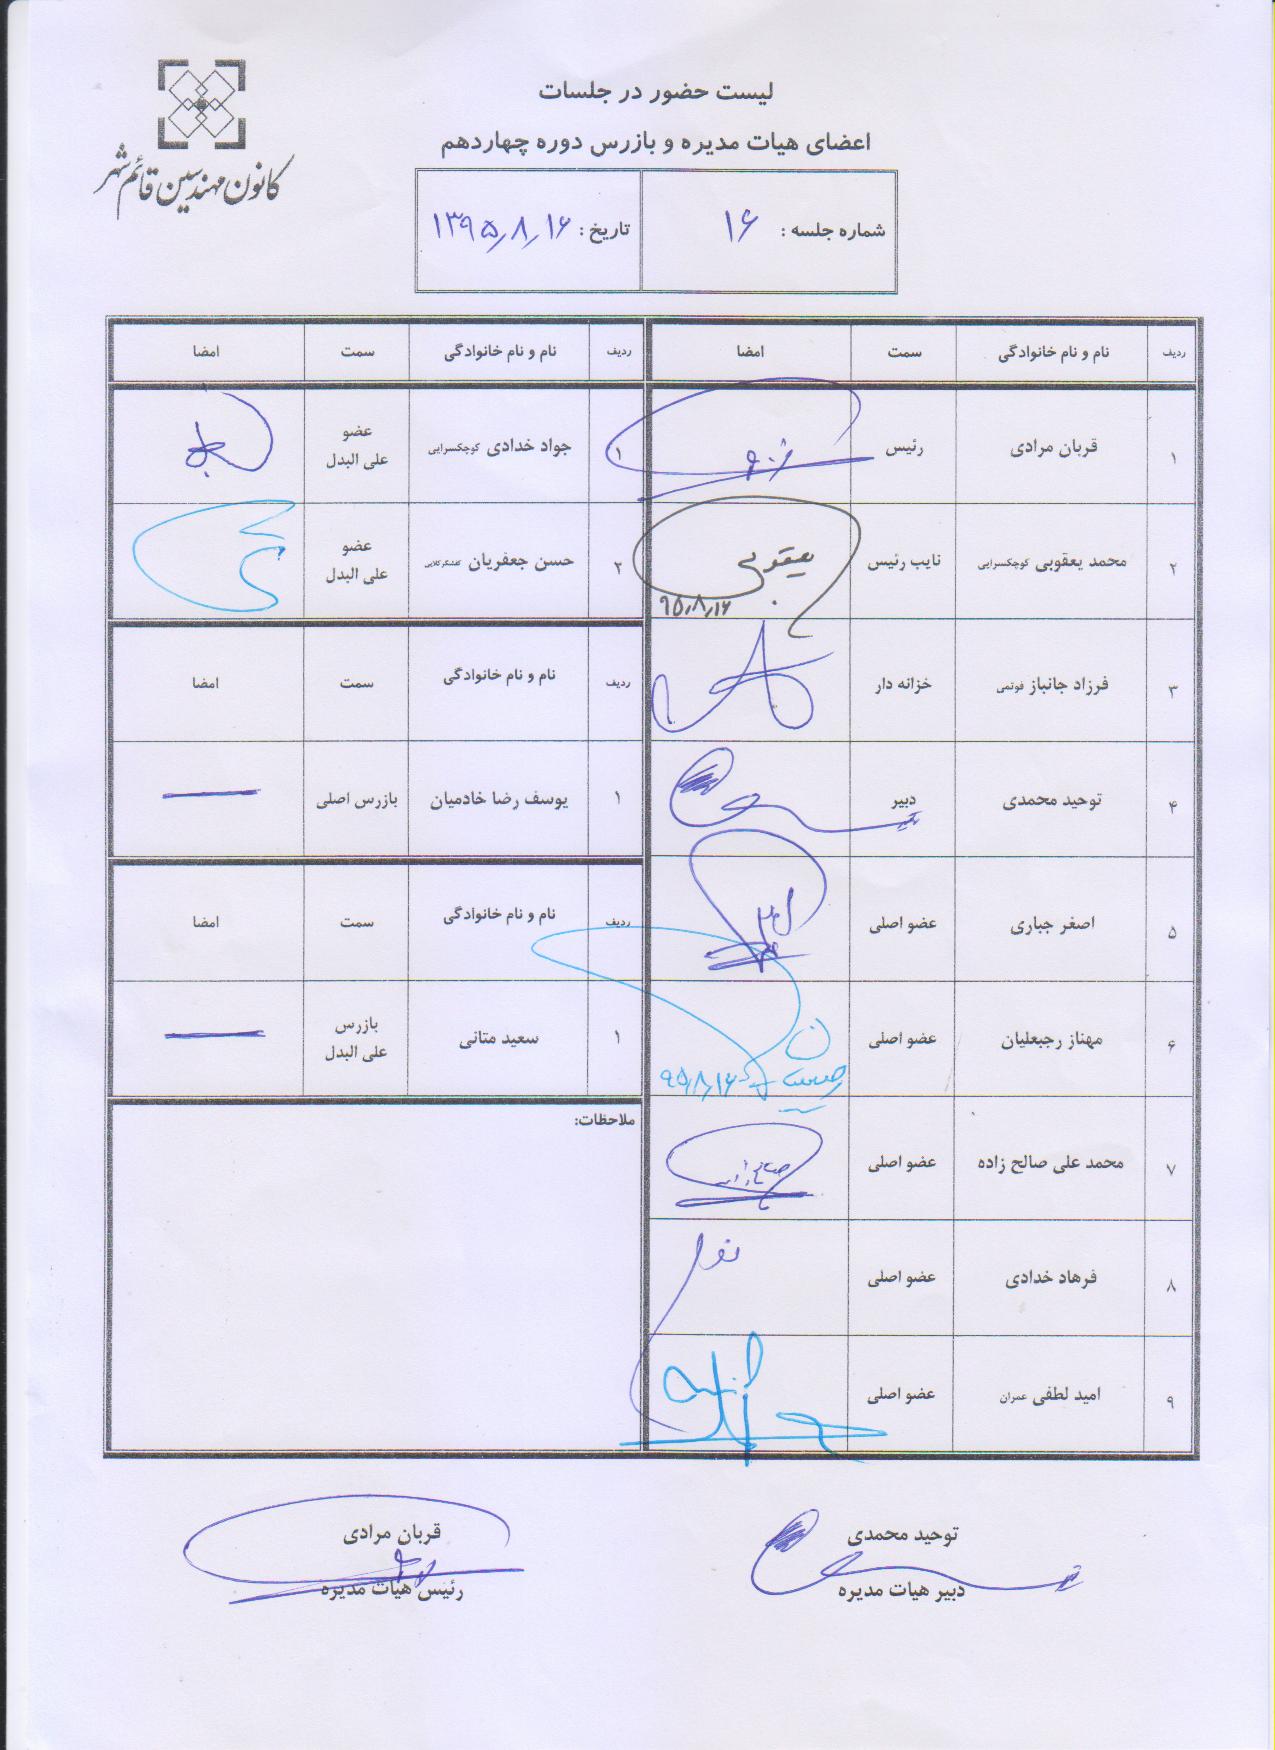 کانون مهندسین قائم شهر
لیست حضور در جلسات
اعضای هیات مدیره و بازرس دوره چهاردهم
شماره جلسه : ۱۶
تاریخ : ۱۳۹۵٫۸٫۱۶
ردیف نام و نام خانوادگی سمت امضا
۱ قربان مرادی رئیس
۲ محمد یعقوبی کوچکسرایی نایب رئیس یعقوبی
۹۵٫۸٫۱۶
۳ فرزاد جانباز فوتمی خزانه دار
۴ توحید محمدی دبیر
۵ اصغر جباری عضو اصلی
۶ مهناز رجبعلیان عضو اصلی
۹۵٫۸٫۱۶
۷ محمد علی صالح زاده عضو اصلی
۸ فرهاد خدادی عضو اصلی
۹ امید لطفی عمران عضو اصلی
ردیف نام و نام خانوادگی سمت امضا
۱ جواد خدادی کوچکسرایی عضو
علی البدل
۲ حسن جعفریان کفشگرکلایی عضو
علی البدل
ردیف نام و نام خانوادگی سمت امضا
۱ یوسف رضا خادمیان بازرس اصلی
ردیف نام و نام خانوادگی سمت امضا
۱ سعید متانی بازرس
علی البدل
ملاحظات:
توحید محمدی
دبیر هیات مدیره
قربان مرادی
رئیس هیات مدیره